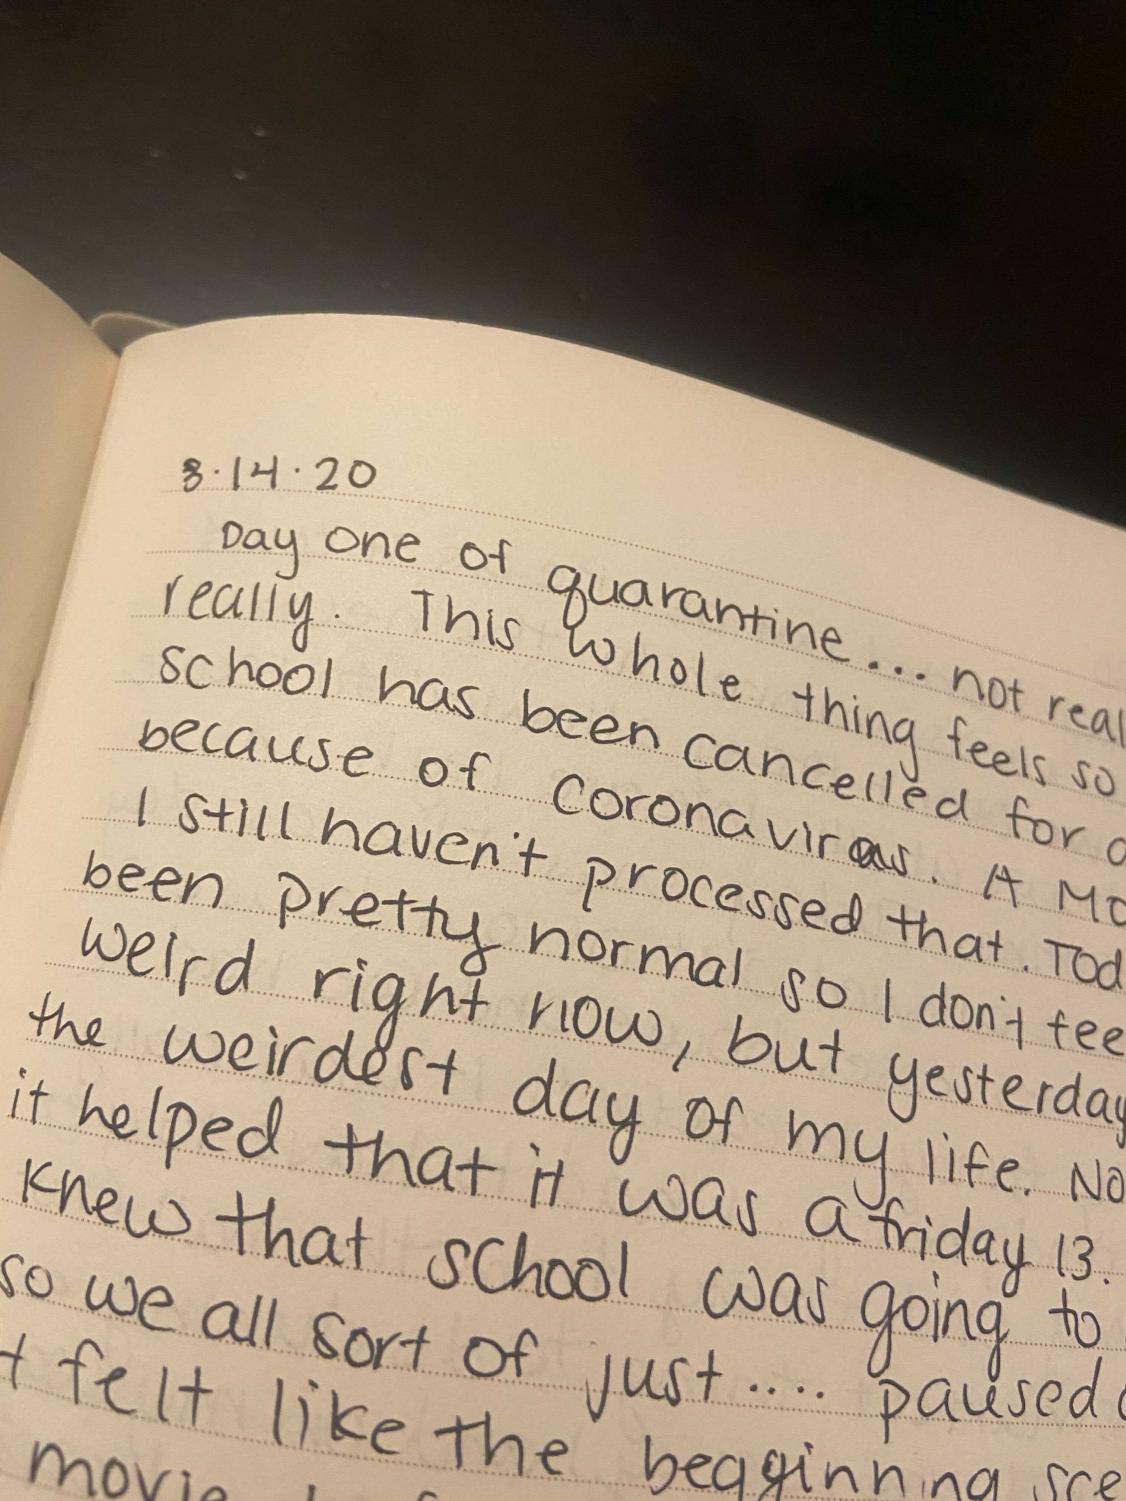 3.14.20
Day one of quarantine... not real
really. This whole thing feels so
school has been cancelled for
because of Coronaviras. A Mo
I still haven't processed that. Tod
been pretty normal so I don't fee
weird right now, but yesterday
the weirdest day of my life. No
it helped that it was a friday 13.
Knew that school was going to
so we all sort of just.... paused
t felt like the beggining sce
movie